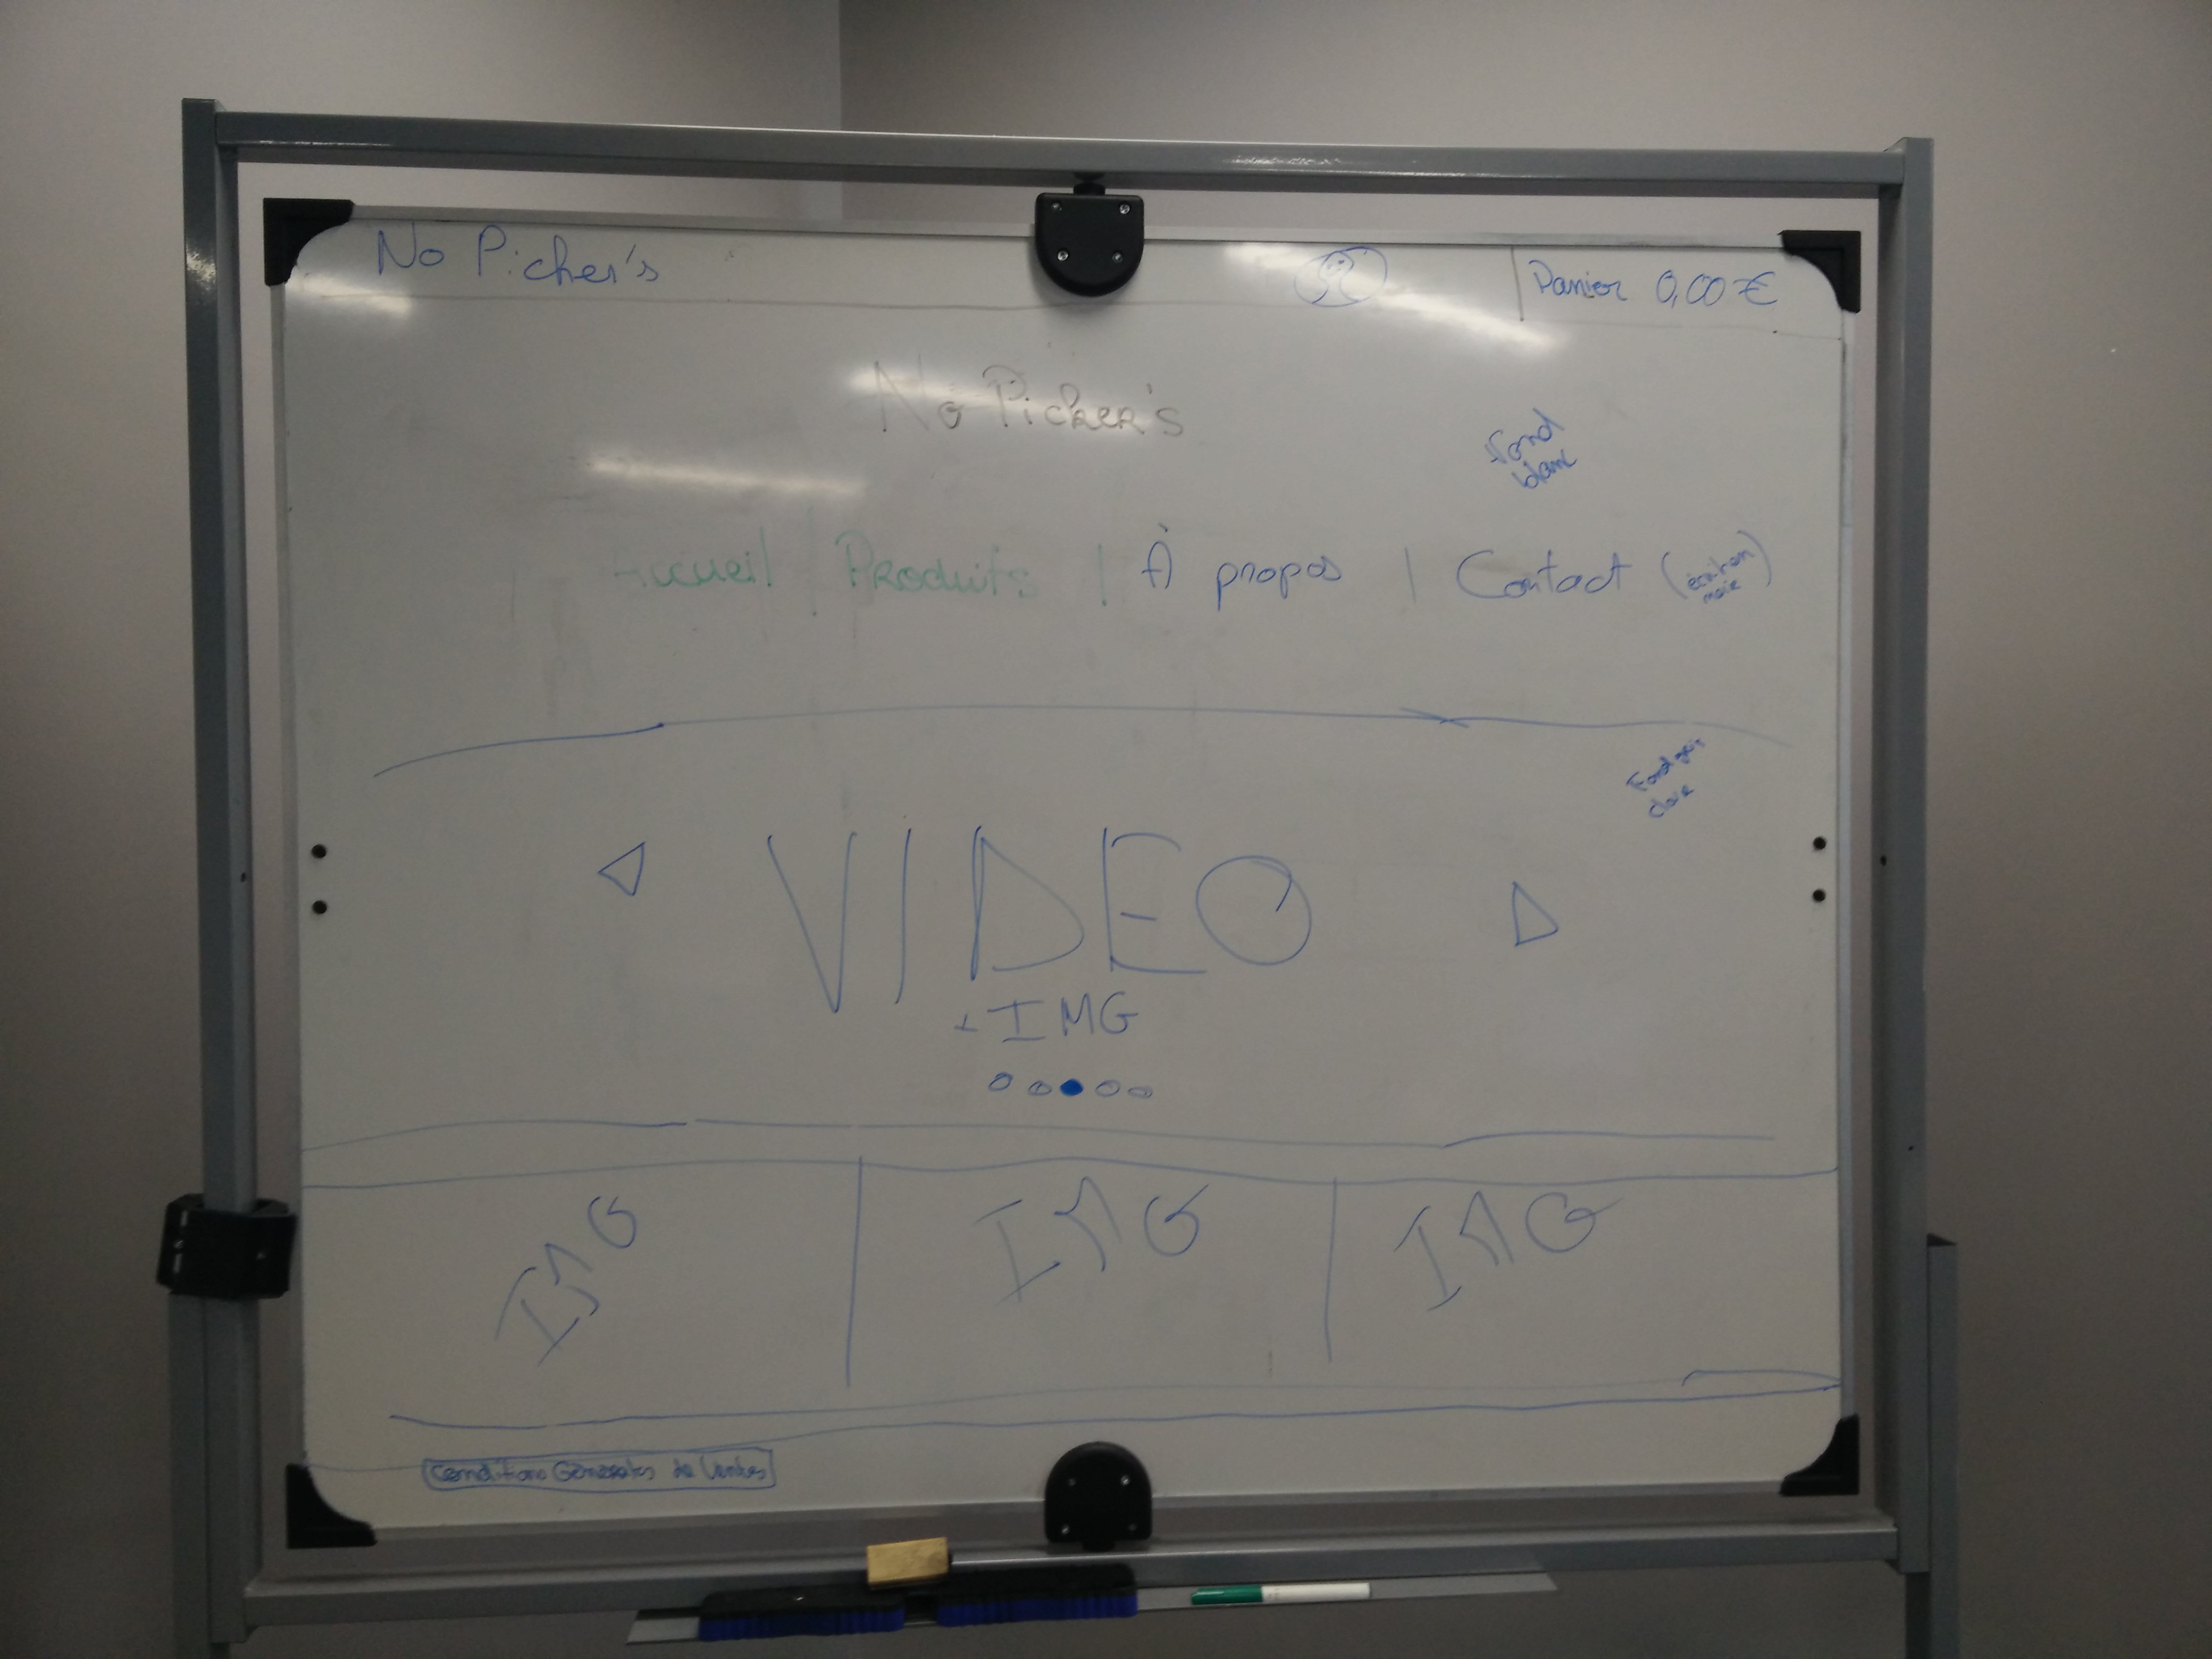 No Picher's
Panier 0,00 €
No Picher's
Fond
blanc
Accueil | Produits | À propos | Contact (écriture
noire)
Fond gris
claire
VIDEO
+ IMG
IMG
IMG
IMG
Conditions Générales de Ventes